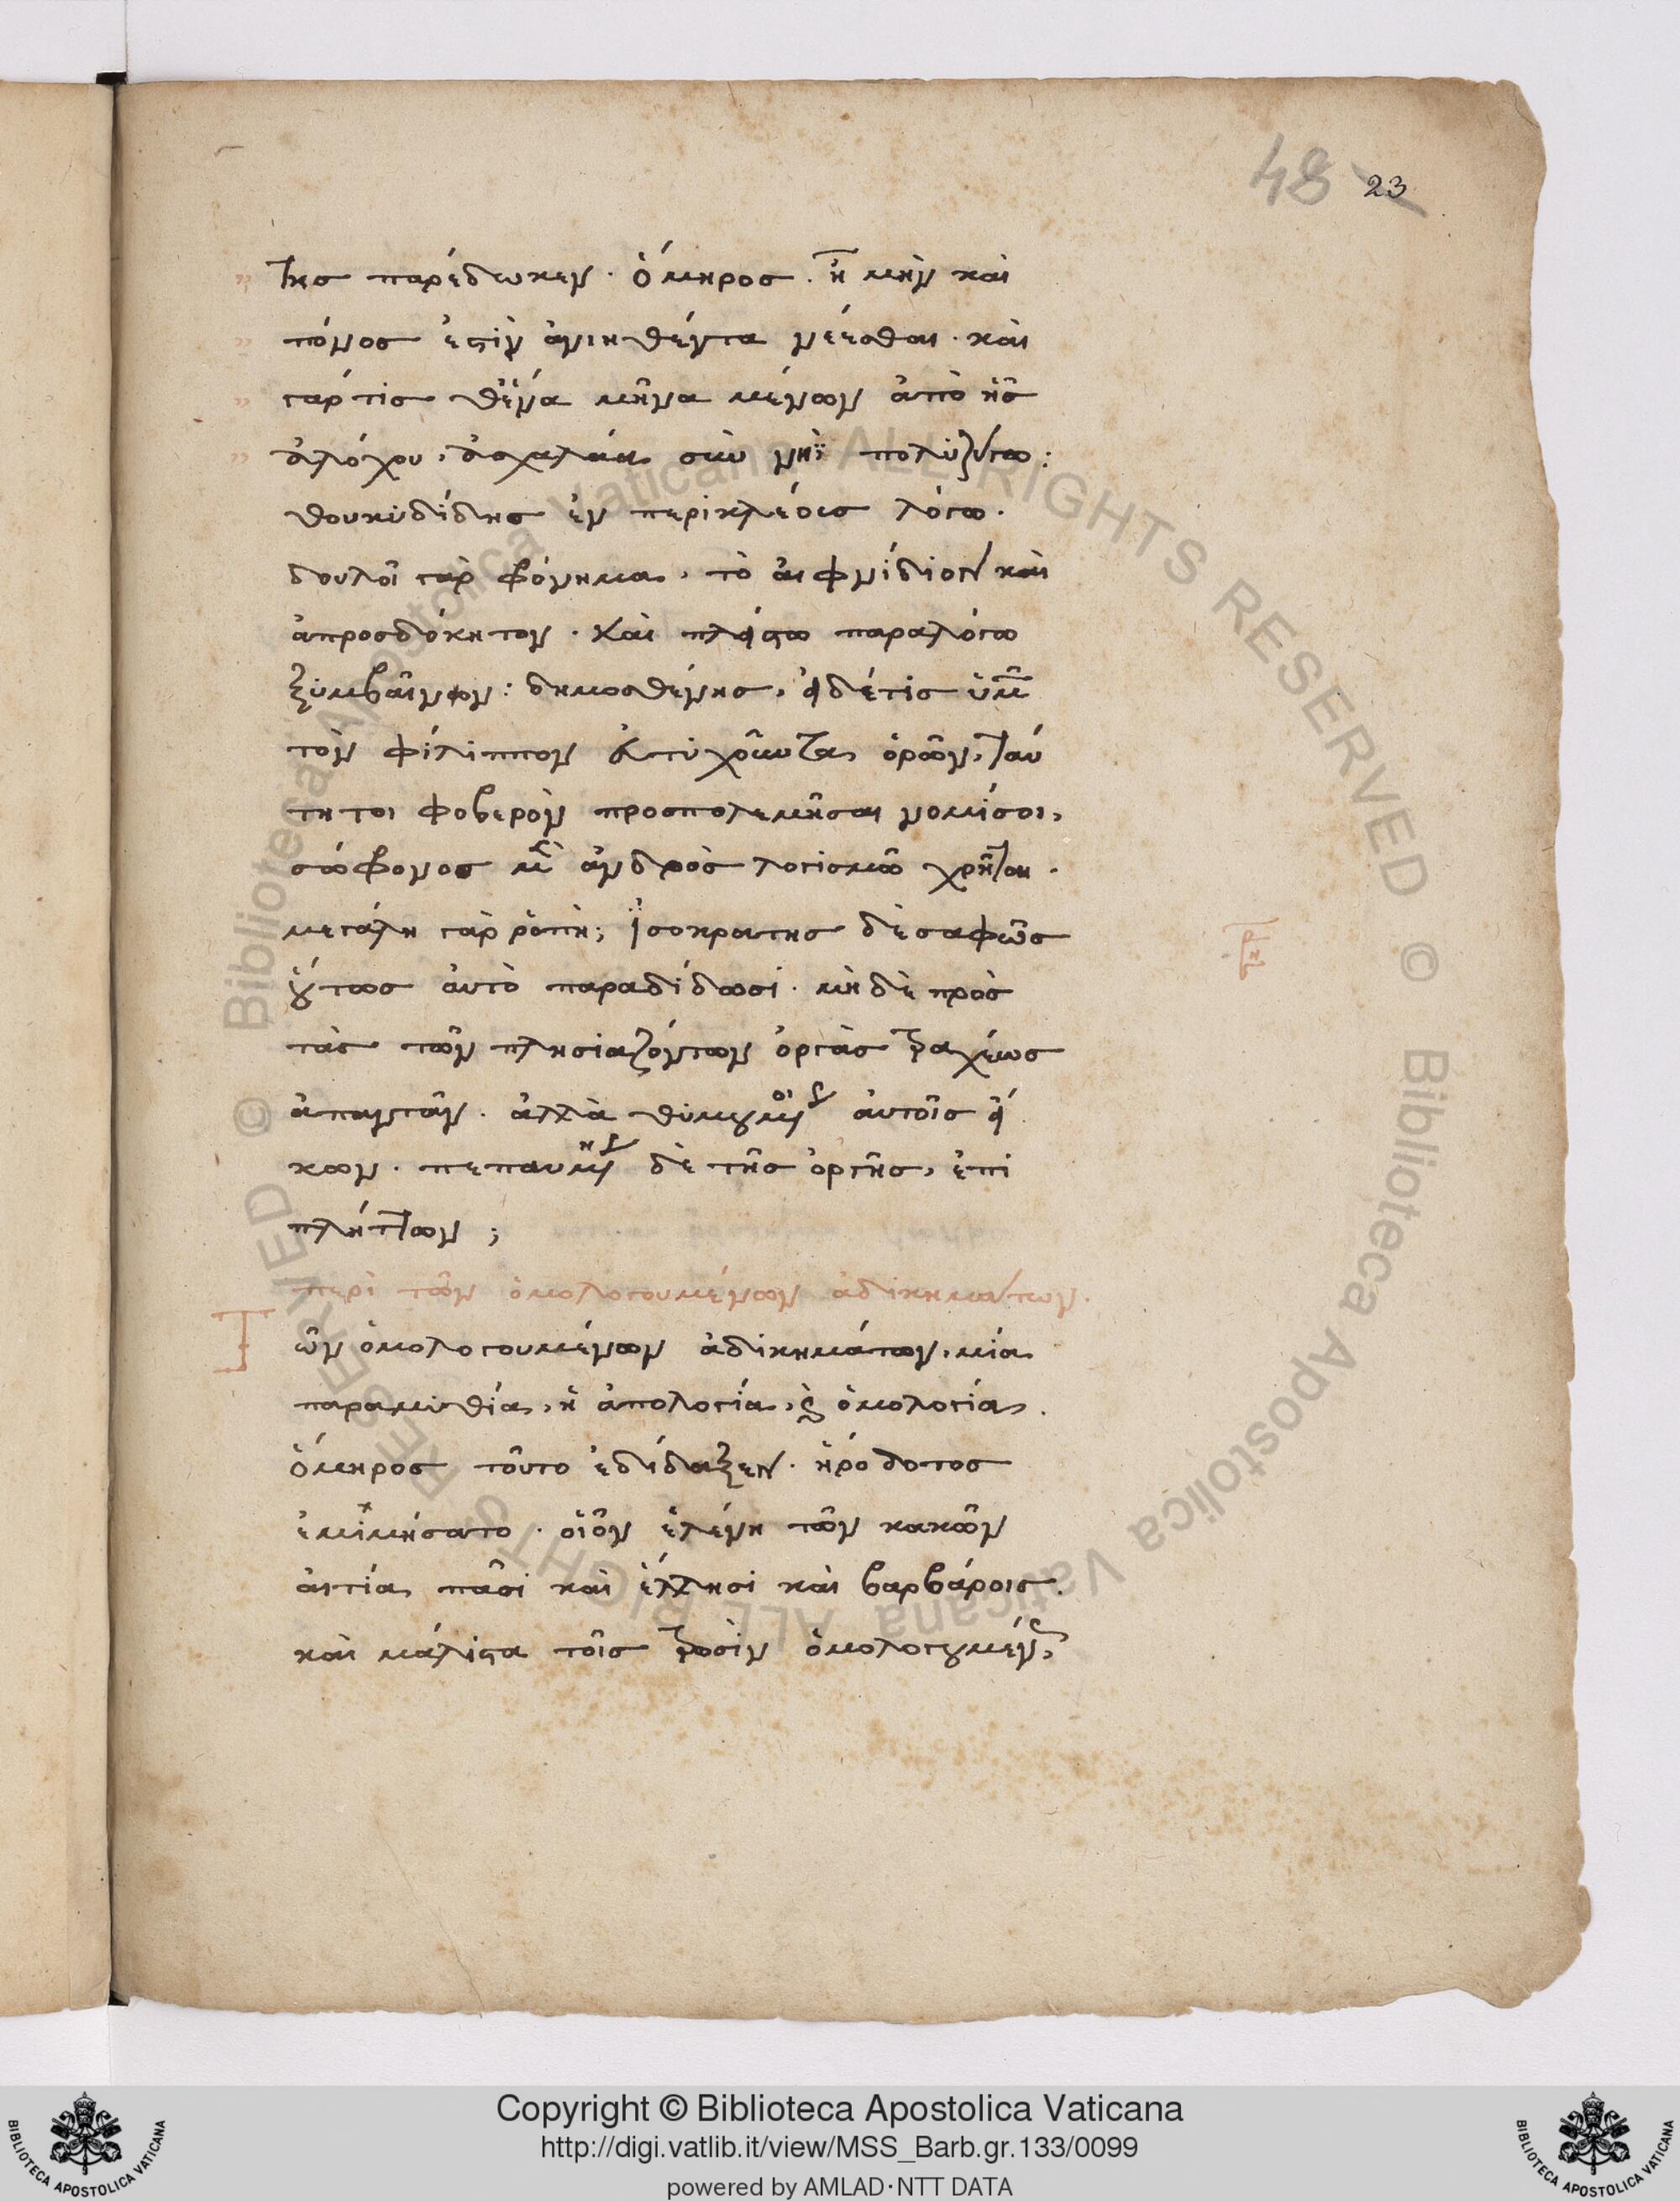 48 23
της παρέδωκεν· ὅμηρος· ἦ μὴν καὶ
πόνος ἐστὶν ἀνιηθέντα νέεσθαι· καὶ
γάρ τίς θ' ἕνα μῆνα μένων ἀπὸ ἧς
ἀλόχου, ἀσχαλάα σὺν νηῒ πολυζύγω:
θουκυδίδης ἐν περικλέους λόγω·
δουλοῖ γὰρ φρόνημα, τὸ αἰφνίδιον καὶ
ἀπροσδόκητον· καὶ πλείστω παραλόγω
ξυμβαῖνον: δημοσθένης, εἰ δέ τις ὑμῶν
τὸν φίλιππον εὐτυχοῦντα ὁρῶν, ταύ
τη τοι φοβερὸν προσπολεμῆσαι νομίσοι,
σώφρονος μὲν ἀνδρὸς λογισμῶ χρῆται·
μεγάλη γὰρ ῥοπὴ; ἰσοκρατης δὲ σαφῶς
οὕτως αὐτὸ παραδίδωσι· μὴ δὲ πρὸς
τὰς τῶν πλησιαζόντων ὀργὰς τραχέως
ἀπαντᾶν· ἀλλὰ θυμουμένοις αὐτοῖς εἴ
κων· πεπαυμένης δὲ τῆς ὀργῆς, ἐπι
πλήττων;
περὶ τῶν ὁμολογουμένων ἀδικημάτων.
Τ ῶν ὁμολογουμένων ἀδικημάτων, μία
παραμυθία, ἡ ἀπολογία, ς ὁμολογία.
ὅμηρος τοῦτο ἐδίδαξεν· ἡρόδοτος
ἐμιμήσατο· οἷον ἑλένη τῶν κακῶν
αἰτία πᾶσι καὶ ἕλλησι καὶ βαρβάροις.
καὶ μάλιστα τοῖς τρωσὶν ὁμολογουμένως,
Copyright © Biblioteca Apostolica Vaticana
http://digi.vatlib.it/view/MSS_Barb.gr.133/0099
powered by AMLAD·NTT DATA
BIBLIOTECA APOSTOLICA VATICANA
BIBLIOTECA APOSTOLICA VATICANA
© Biblioteca Apostolica Vaticana ALL RIGHTS RESERVED © Biblioteca Apostolica Vaticana ALL RIGHTS RESERVED